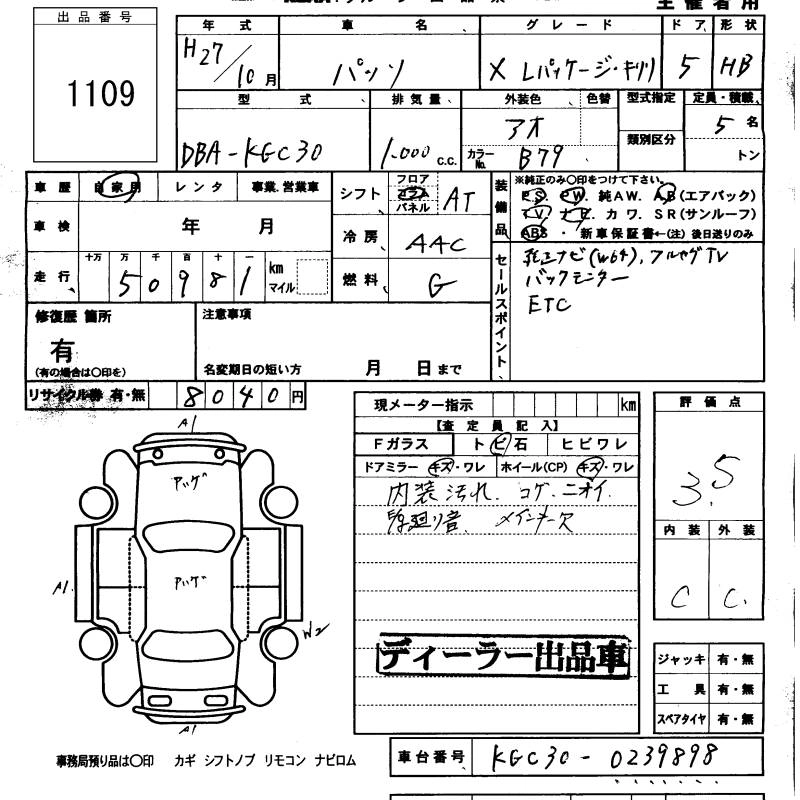 主催者用
出品番号
1109
年式 車名 グレード ドア 形状
H27/10月 パッソ X Lパッケージ・キリリ 5 HB
型式 排気量 外装色 色替 型式指定 定員・積載
DBA-KGC30 1.000 c.c. アオ カラーNo. B79 類別区分 5名 トン
車歴 自家用 レンタ 事業.営業車
車検 年 月
走行 十万 万 千 百 十 一 km マイル
5 0 9 8 1
シフト フロア コラム パネル AT
冷房 AAC
燃料 G
装備品 ※純正のみ〇印をつけて下さい。
P.S. P.W. 純AW. A.B(エアバック)
T V. ナビ. カワ. SR(サンルーフ)
ABS ・ 新車保証書←(注) 後日送りのみ
セールスポイント 純正ナビ(W64), フルセグTV
バックモニター
ETC
修復歴 箇所
有
(有の場合は〇印を)
注意事項
名変期日の短い方 月 日まで
リサイクル券 有・無 8040円
A1
アハゲ
アハゲ
A1.
W2
A1
事務局預り品は〇印 カギ シフトノブ リモコン ナビロム
現メーター指示 km
【査定員記入】
Fガラス トビ石 ヒビワレ
ドアミラー キズ・ワレ ホイール(CP) キズ・ワレ
内装汚れ. コゲ. ニオイ.
廻り音. メインキー欠
ディーラー出品車
評価点
3.5
内装 外装
C C.
ジャッキ 有・無
工具 有・無
スペアタイヤ 有・無
車台番号 KGC30-0239898